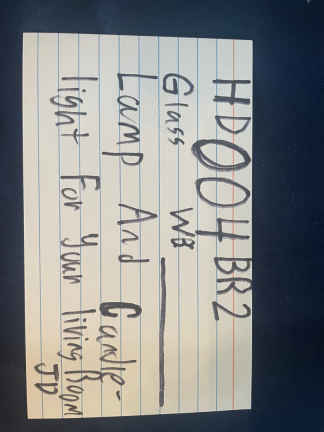 HD004BR2
Glass WB
Lamp And Candle-
light For your living Room
JD